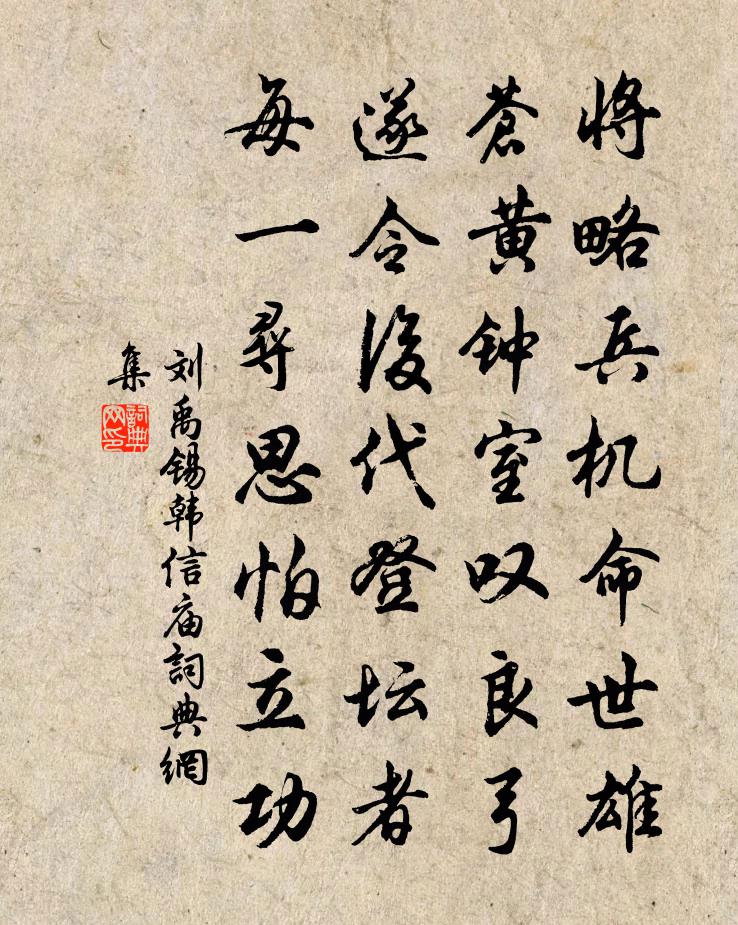 将略兵机命世雄
蒼黄钟室叹良弓
遂令後代登坛者
每一尋思怕立功
刘禹锡韩信庙詞典網
集
詞典
网印